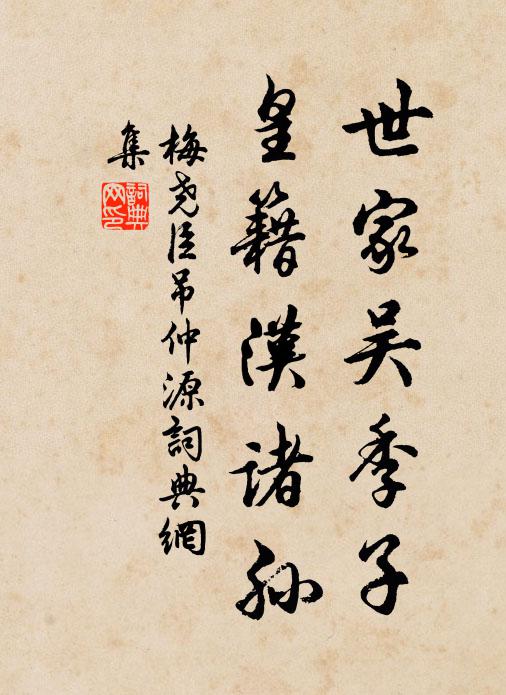 世家吴季子
皇籍漢諸孙
梅尧臣吊仲源詞典網
集
詞典
网印